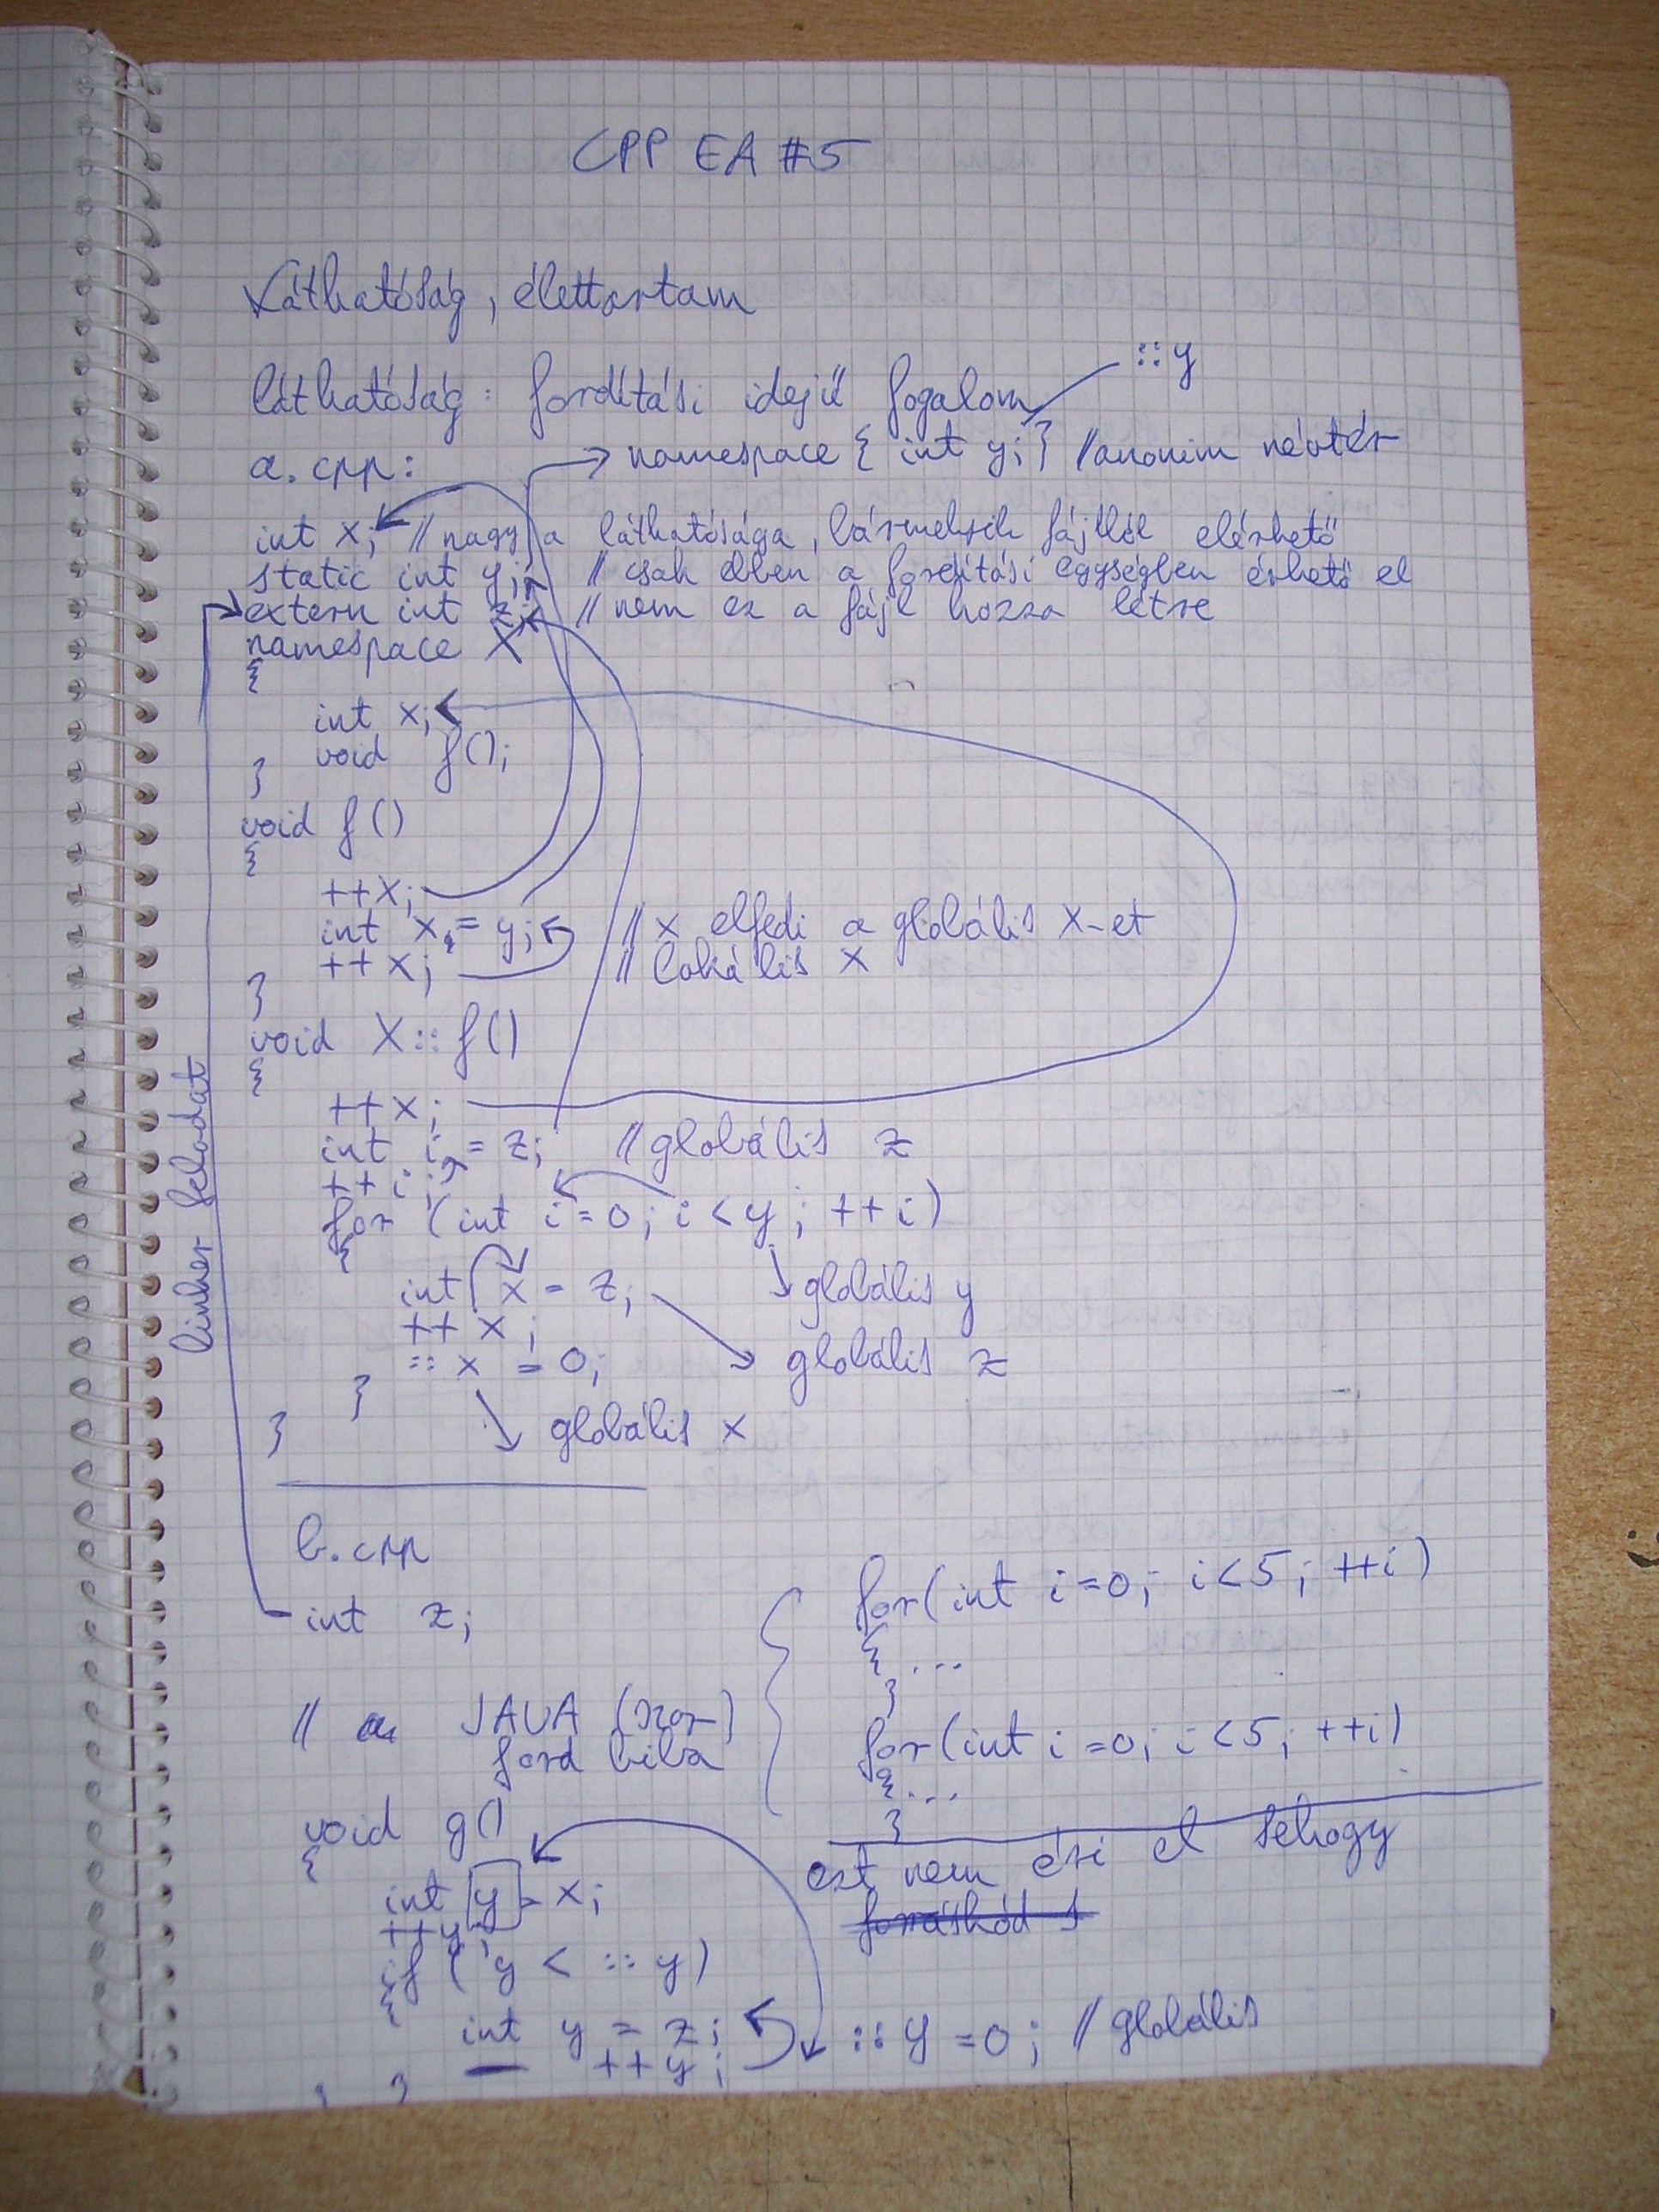 CPP EA #5
Láthatóság, élettartam
láthatóság: fordítási idejű fogalom
::y
a.cpp:
namespace { int y; } // anonim névtér
int x; // nagy a láthatósága, bármelyik fájlból elérhető
static int y; // csak ebben a fordítási egységben érhető el
extern int z; // nem ez a fájl hozza létre
namespace X
{
int x;
void f();
}
void f()
{
++x;
int x = y; // x elfedi a globális x-et
++x; // lokális x
}
void X::f()
{
++x;
int i = z; // globális z
++i;
for (int i=0; i<y; ++i)
{
int x = z;
globális y
++x;
::x = 0;
globális z
}
globális x
}
linker feladat
b.cpp
int z;
// JAVA
ford hiba
for(int i=0; i<5; ++i)
{ ...
}
for(int i=0; i<5; ++i)
{ ...
}
void g()
{
int y = x;
++y;
if (y < ::y)
{
int y = z;
++y;
} }
ezt nem éri el sehogy
forráskód s
::y = 0; // globális